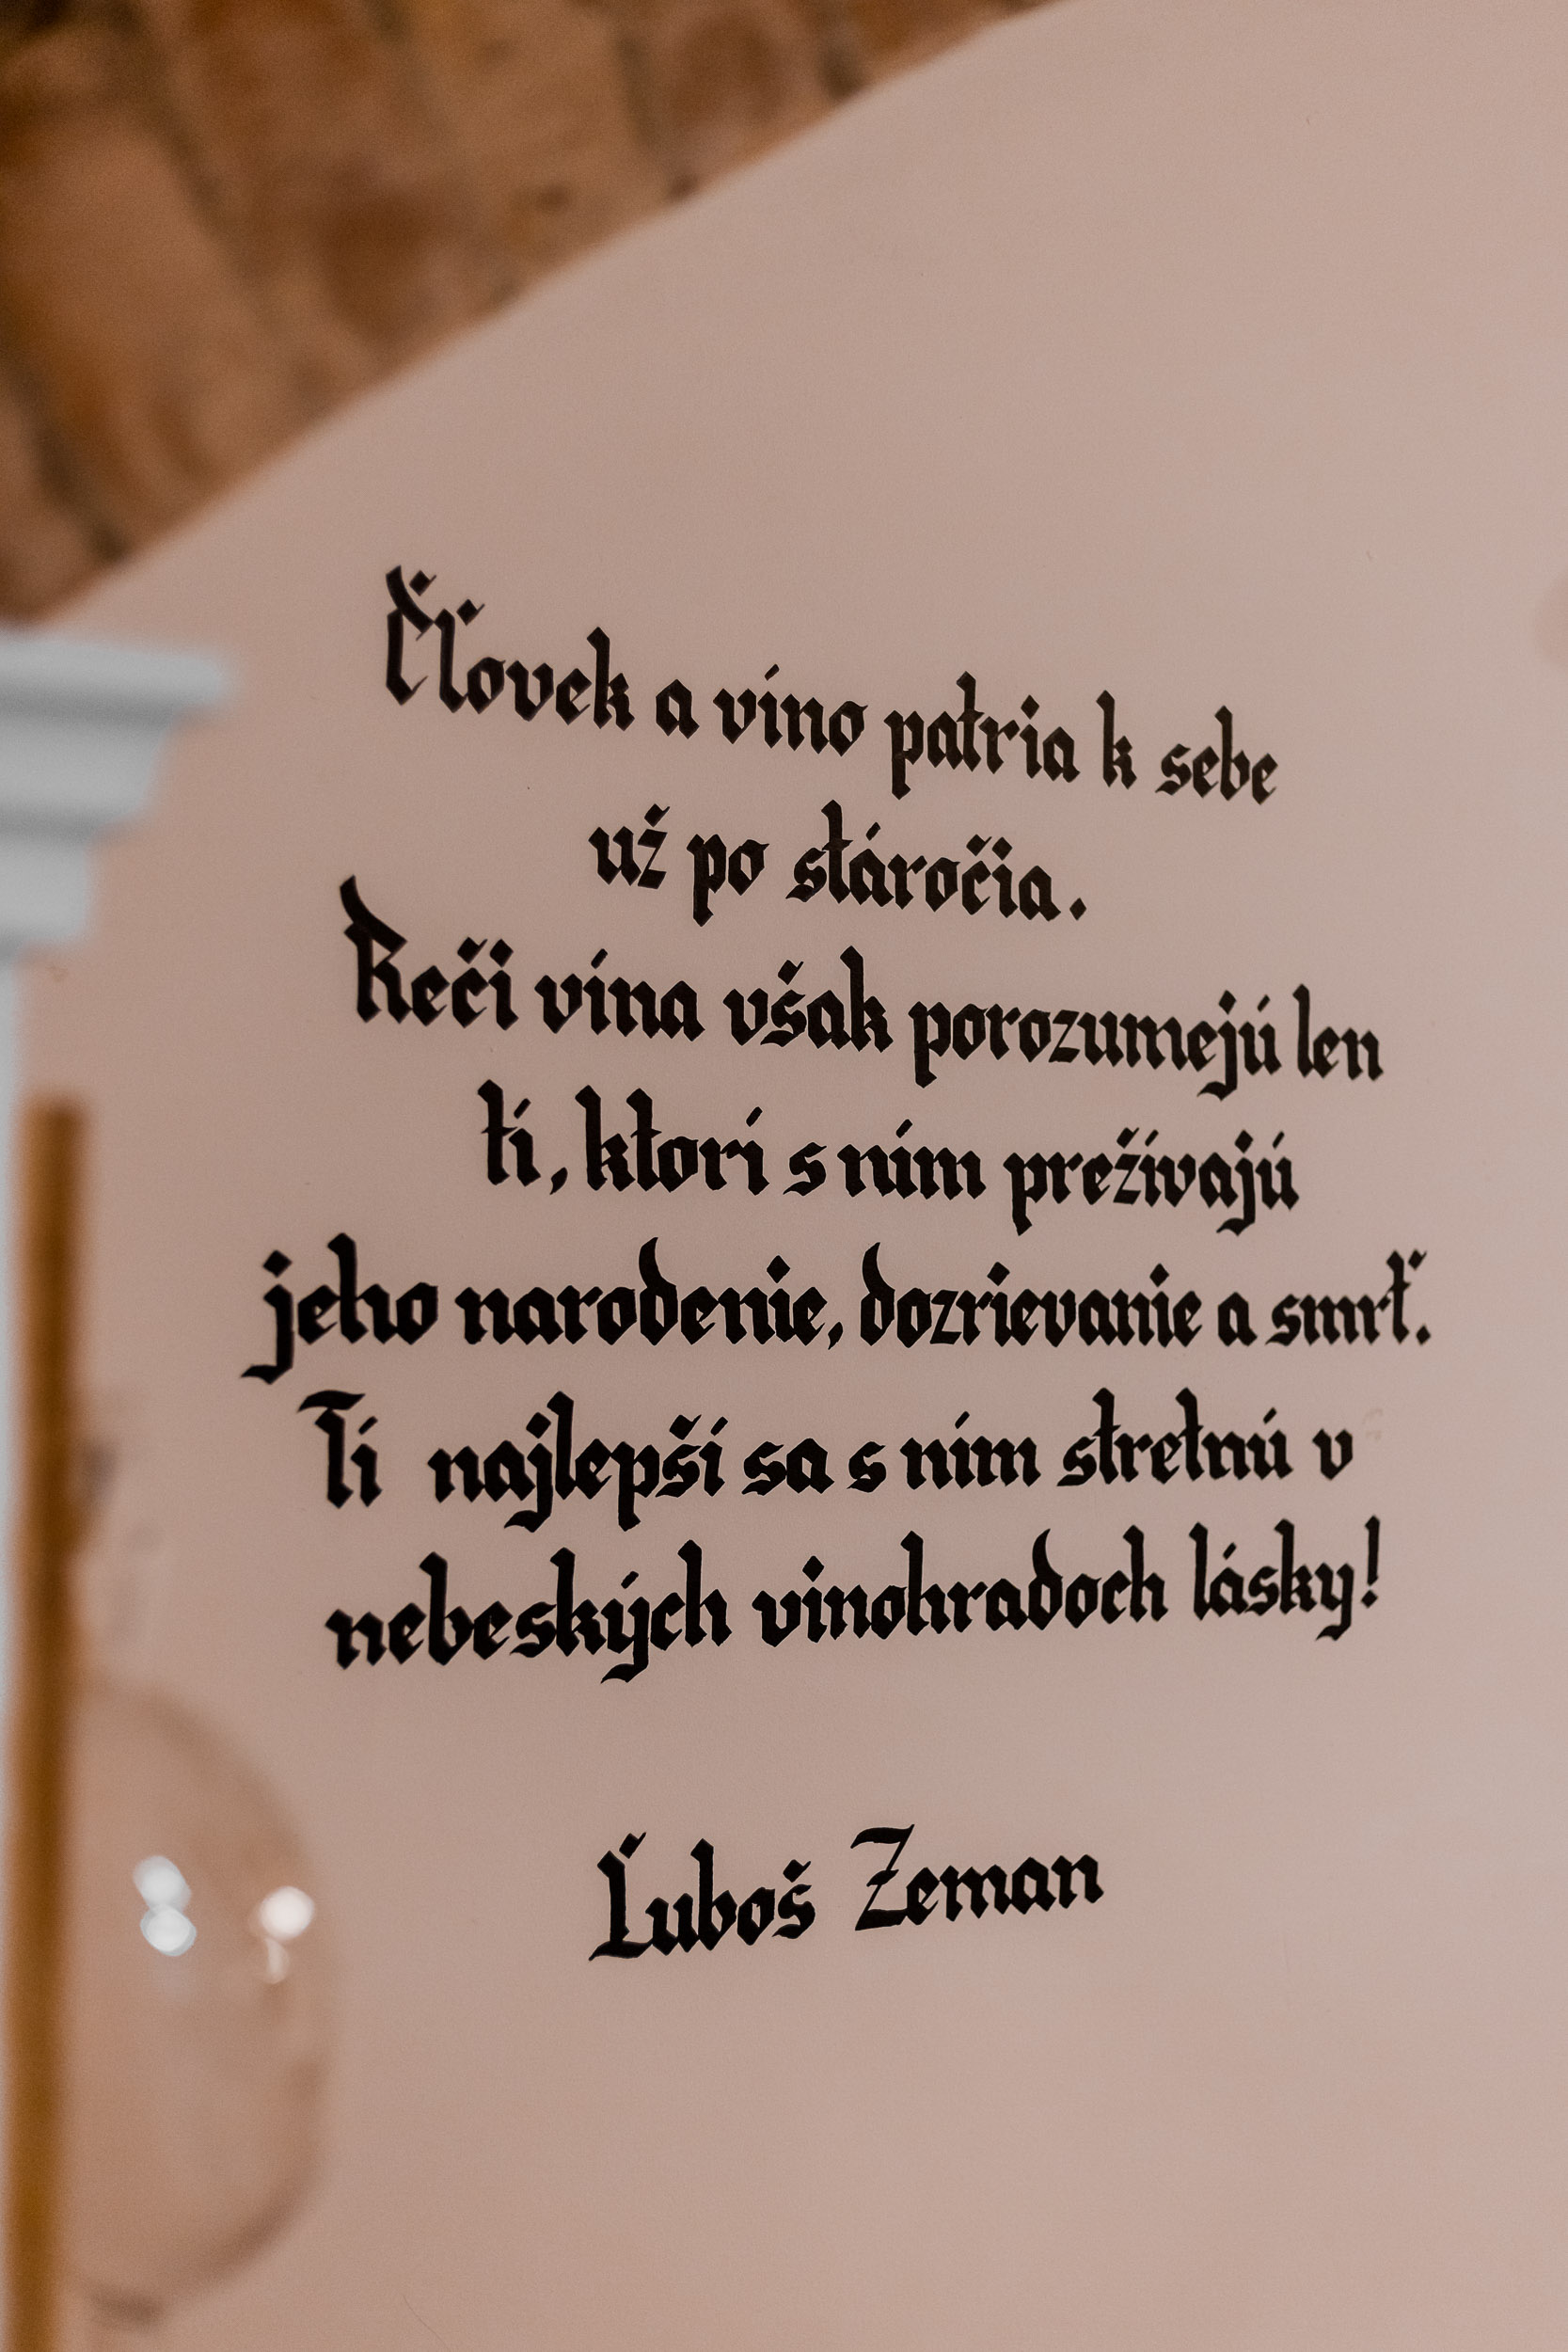 Čľovek a víno patria k sebe
už po stáročia.
Reči vína však porozumejú len
tí, ktorí s ním prežívajú
jeho narodenie, dozrievanie a smrť.
Tí najlepší sa s ním stretnú v
nebeských vinohradoch lásky!
Ľuboš Zeman